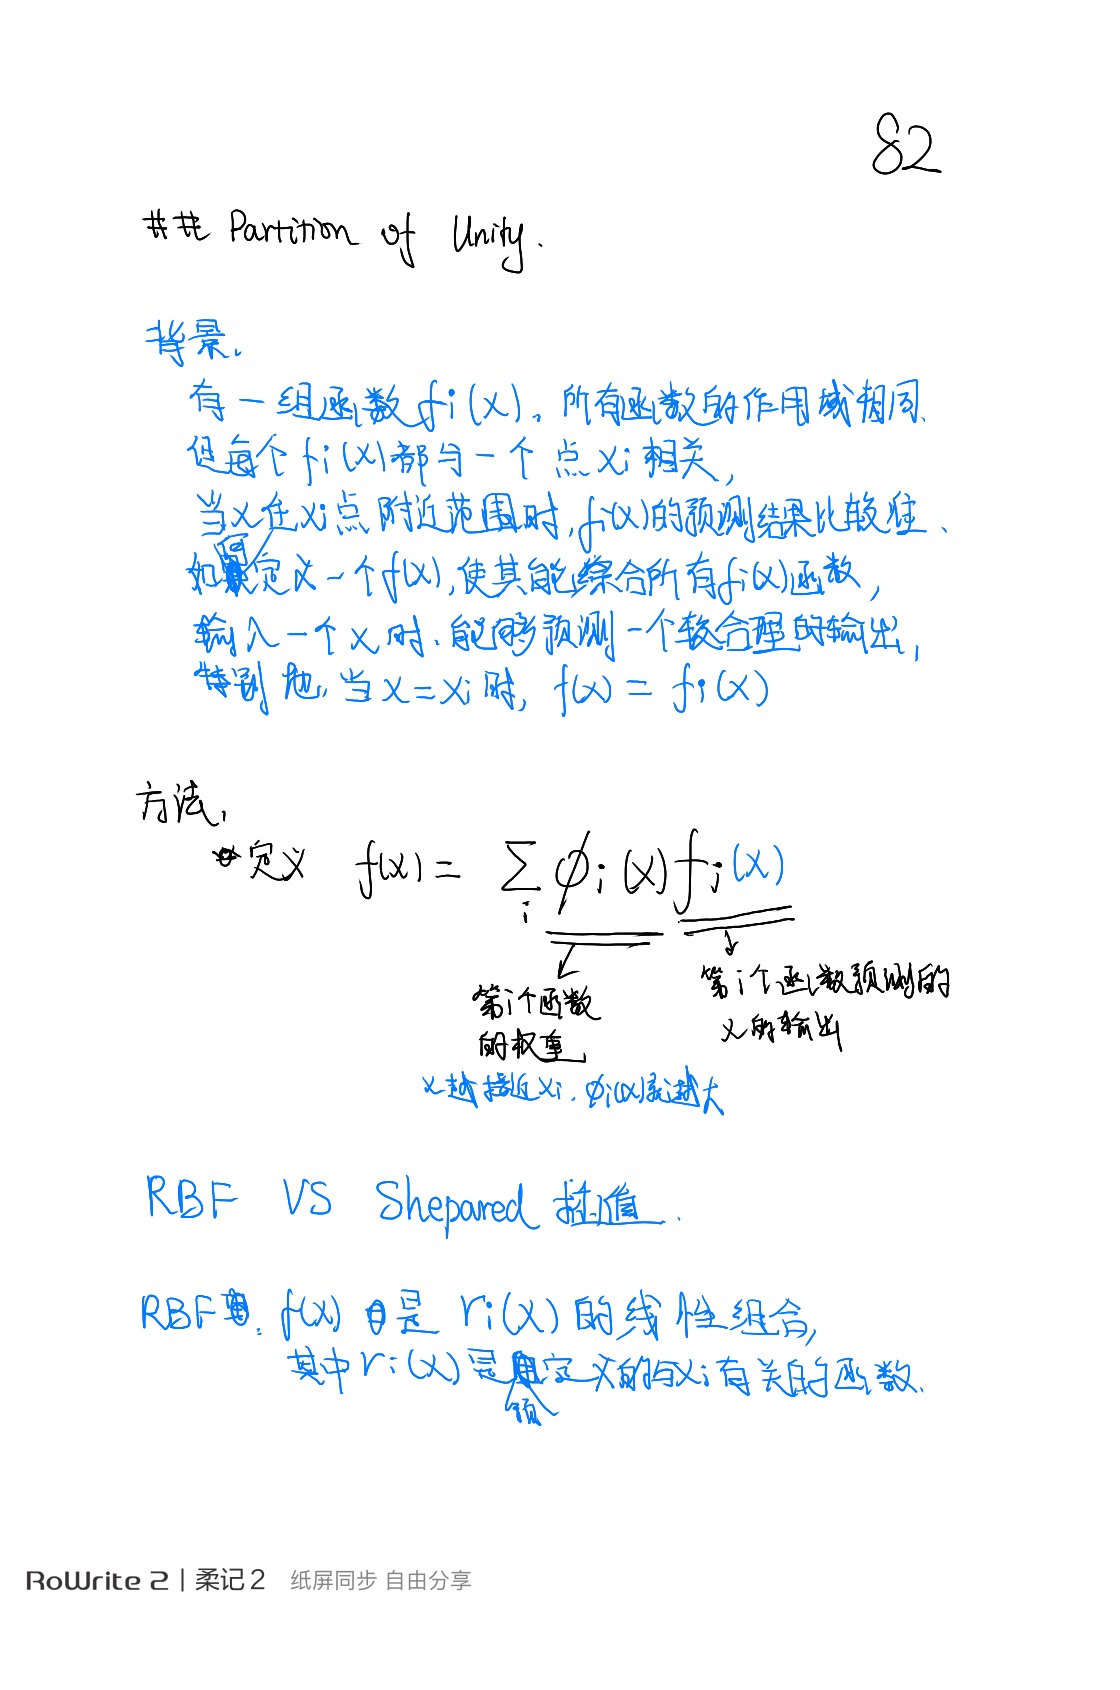 82
## Partition of Unity.
背景.
有一组函数 fi(x)。所有函数的作用域相同、
但每个 fi(x)都与一个点 xi 相关,
当x在xi点附近范围时,fi(x)的预测结果比较准、
如何定义一个f(x),使其能综合所有fi(x)函数,
输入一个x时、能够预测一个较合理的输出,
特别地,当x=xi时, f(x) = fi(x)
方法,
定义 f(x) = ∑i ϕi(x) fi(x)
第i个函数的权重
第i个函数预测的x的输出
x越接近xi、ϕi(x)就越大
RBF VS Shepared 插值.
RBF: f(x) 是 ri(x) 的线性组合,
其中ri(x)是预定义的与xi有关的函数.
RoWrite 2 | 柔记 2 纸屏同步 自由分享